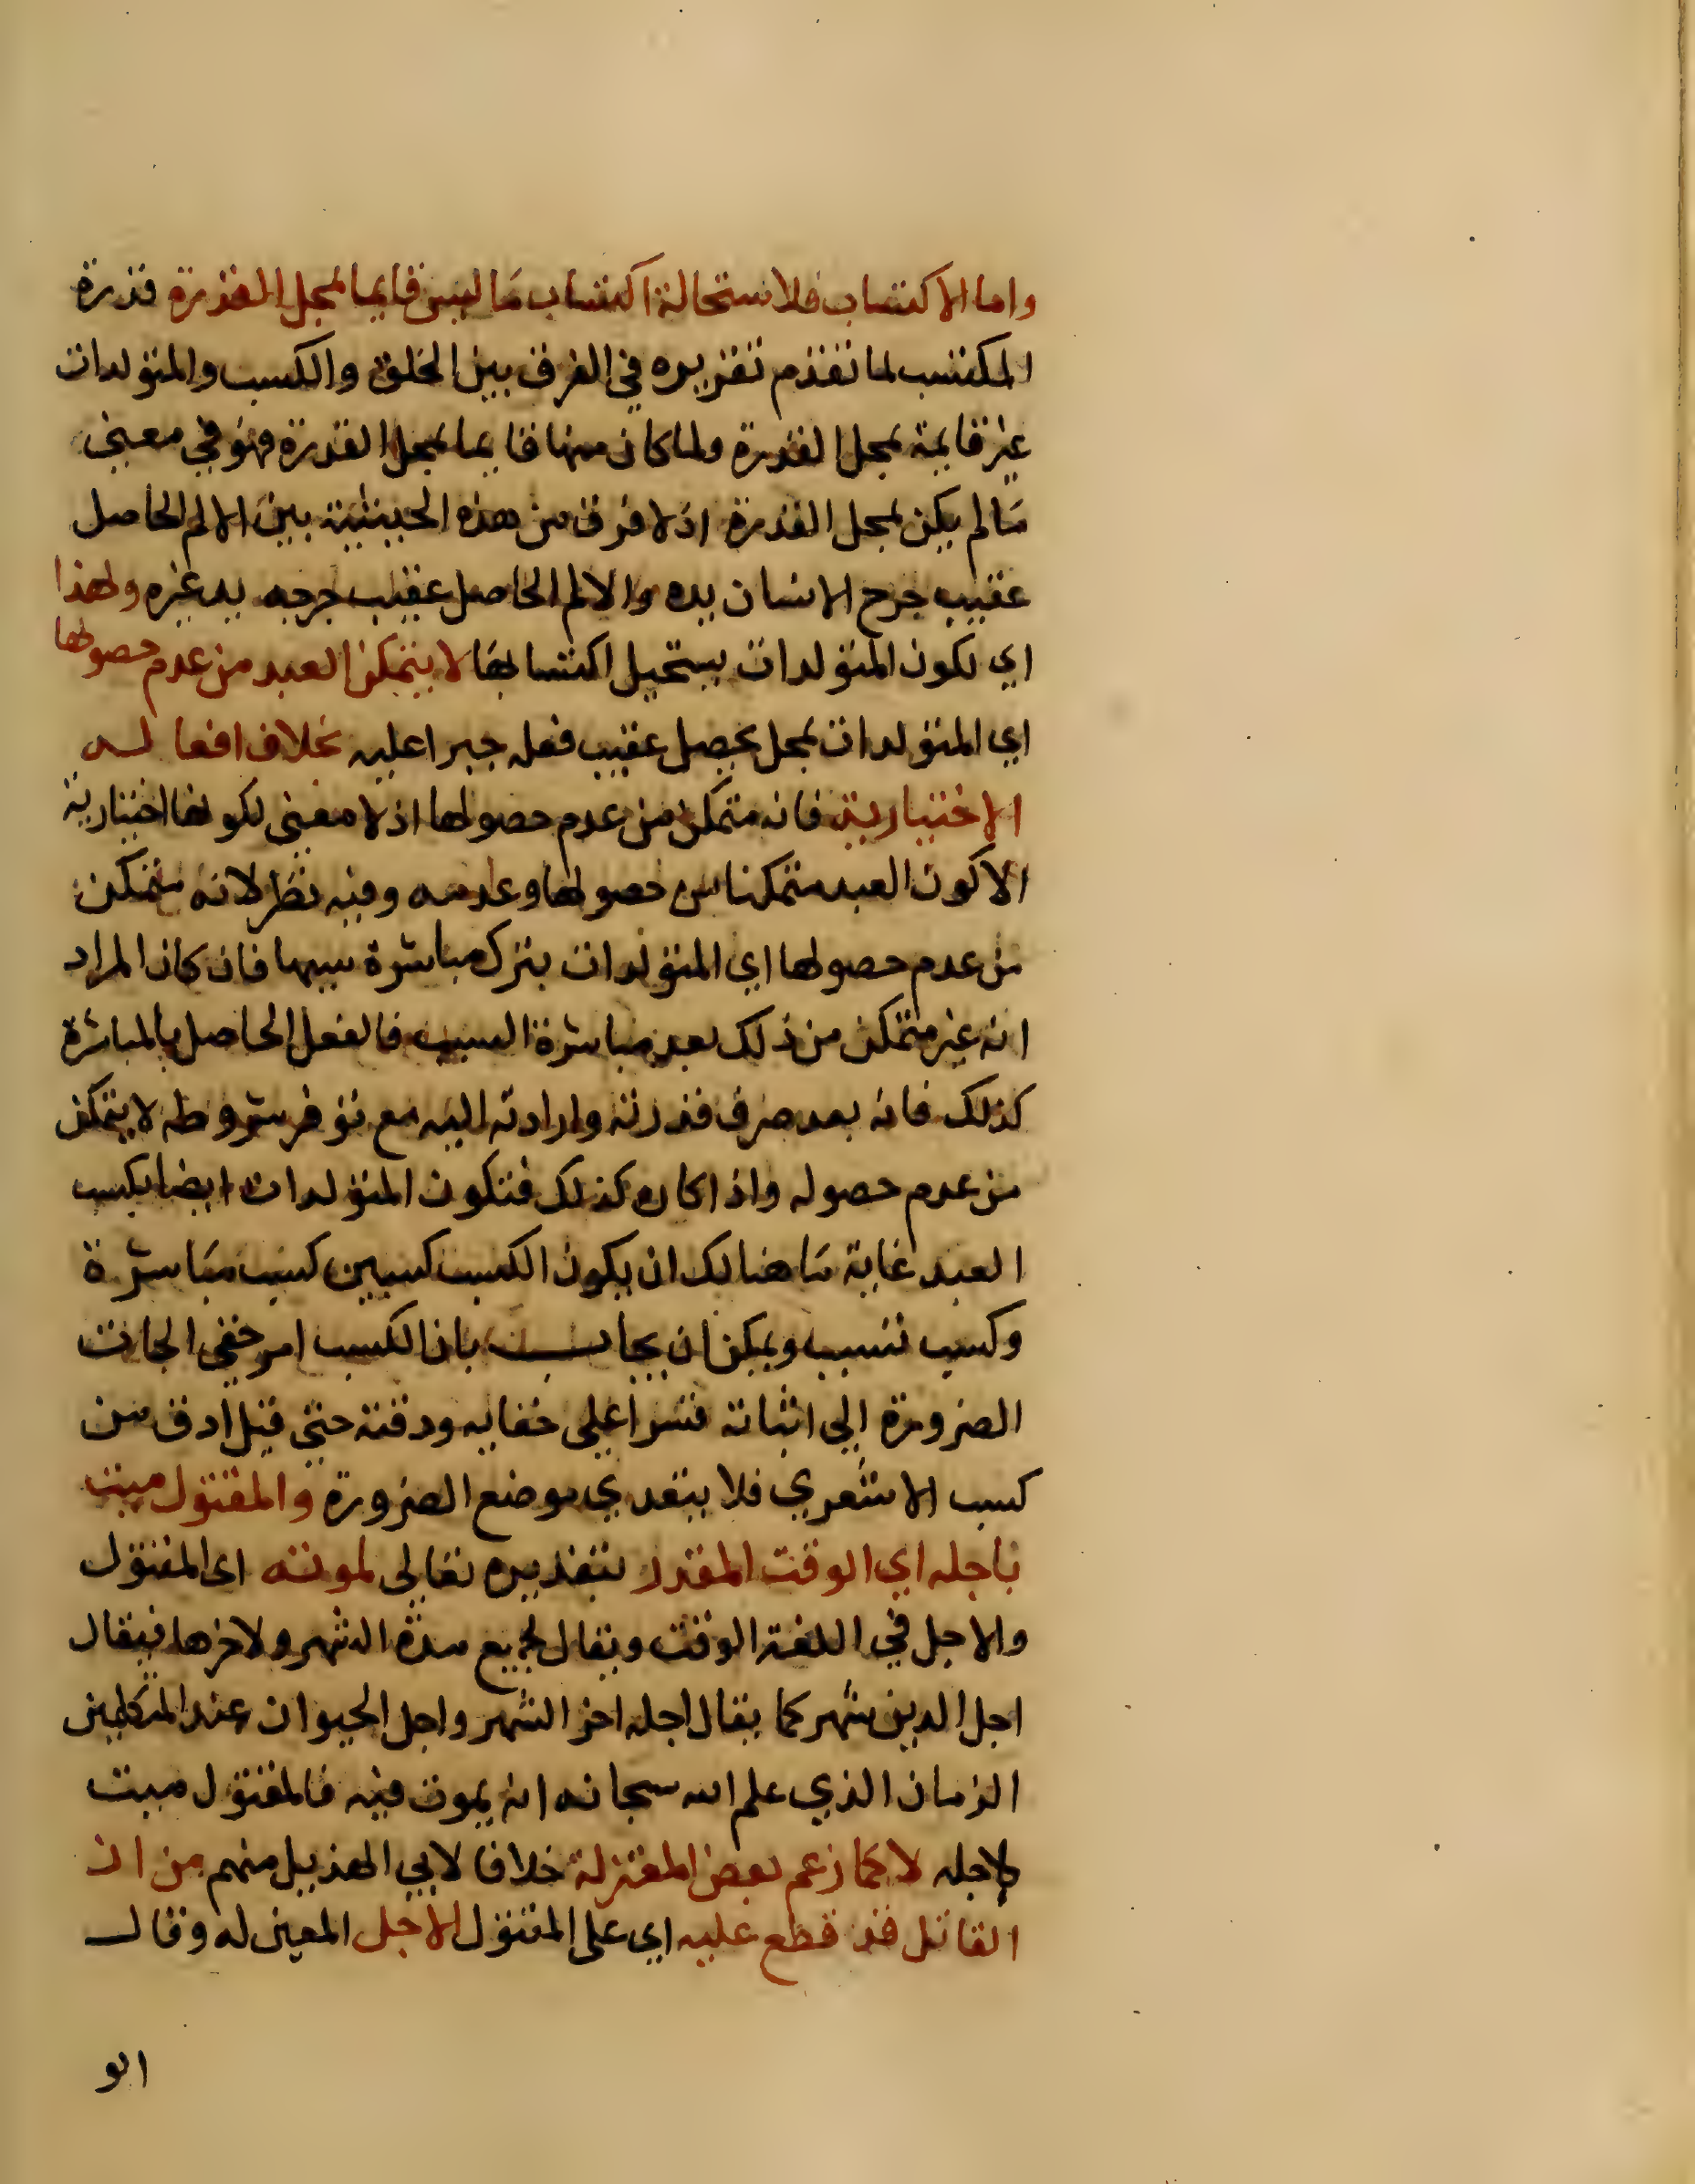 واما الاكتساب فلاستحالة اكتساب ما ليس قايما بمحل القدرة قدرة
المكتسب لما تقدم تقريره في الفرق بين الخلق والكسب والمتولدات
غير قايمة بمحل القدرة ولما كان منها قايما بمحل القدرة فهو في معنى
ما لم يكن بمحل القدرة اذ لا فرق من هذه الحيثية بين الالم الحاصل
عقيب جرح الانسان يده والالم الحاصل عقيب جرحه يد غيره ولهذا
اي لكون المتولدات يستحيل اكتسابها لا يتمكن العبد من عدم حصولها
اي المتولدات بمحل يحصل عقيب فعله جبرا عليه بخلاف افعاله
الاختيارية فانه متمكن من عدم حصولها اذ لا معنى لكونها اختيارية
الا كون العبد متمكنا من حصولها وعدمه وفيه نظر لانه متمكن
من عدم حصولها اي المتولدات بترك مباشرة سببها فان كان المراد
انه غير متمكن من ذلك بعد مباشرة السبب فالفعل الحاصل بالمباشرة
كذلك فانه بعد صرف قدرته وارادته اليه مع توفر شروطه لا يتمكن
من عدم حصوله واذا كان كذلك فتكون المتولدات ايضا بكسب
العبد غاية ما هنالك ان يكون الكسب كسبين كسب مباشرة
وكسب تسبب ويمكن ان يجاب بان الكسب امر خفي الجات
الضرورة الى اثباته قسرا على خفايه ودقته حتى قيل ادق من
كسب الاشعري فلا يتعدي موضع الضرورة والمقتول ميت
باجله اي الوقت المقدر بتقديره تعالى لموته اى المقتول
والاجل في اللغة الوقت ويقال لجميع مدة الشهر ولاخرها فيقال
اجل الدين شهر كما يقال اجله اخر الشهر واجل الحيوان عند المتكلمين
الزمان الذي علم الله سبحانه انه يموت فيه فالمقتول ميت
لاجله لا كما زعم بعض المعتزلة خلافا لابي الهذيل منهم من ان
القاتل قد قطع عليه اي على المقتول الاجل المعين له وقال
ابو